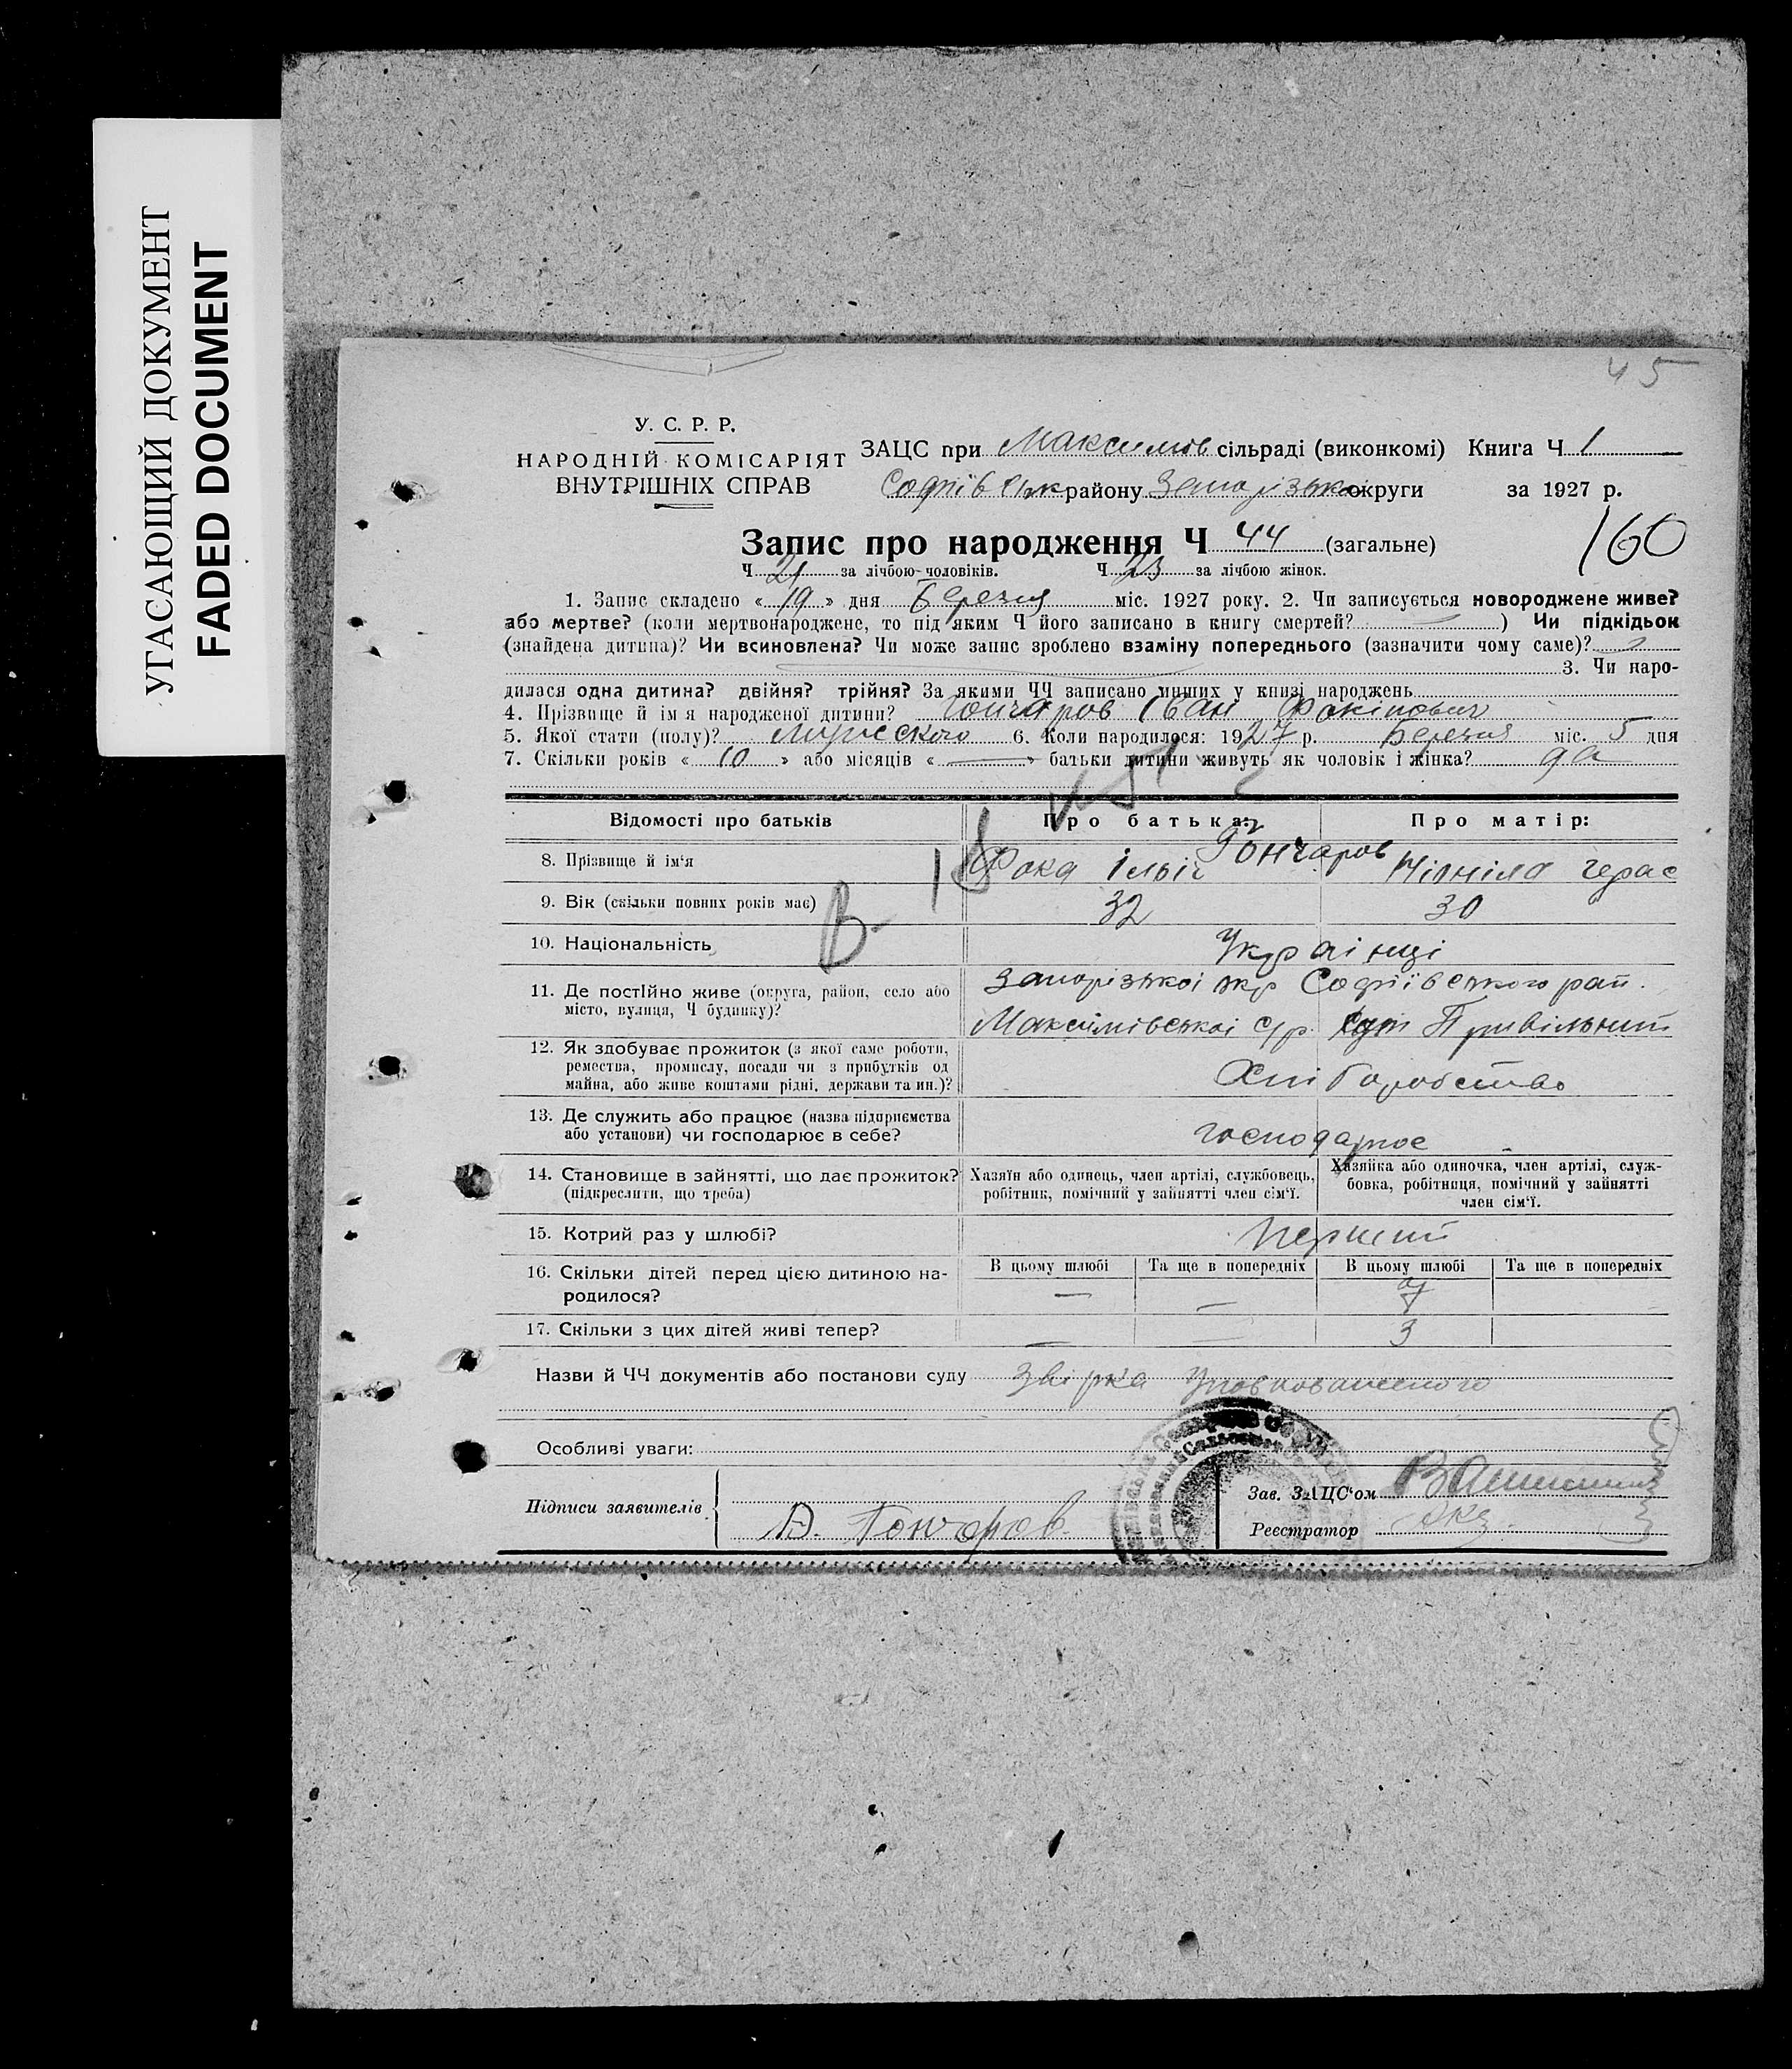 УГАСАЮЩИЙ ДОКУМЕНТ
FADED DOCUMENT
45
У. С. Р. Р.
НАРОДНІЙ КОМІСАРІЯТ
ВНУТРІШНІХ СПРАВ
ЗАЦС при Максимів сільраді (виконкомі) Книга Ч 1
Софіївськ району Запорізької округи за 1927 р.
160
Запис про народження Ч 44 (загальне)
Ч 21 за лічбою чоловіків. Ч 23 за лічбою жінок.
1. Запис складено « 19 » дня березня міс. 1927 року. 2. Чи записується новороджене живе?
або мертве? (коли мертвонароджене, то під яким Ч його записано в книгу смертей? — ) Чи підкідьок
(знайдена дитина)? Чи всиновлена? Чи може запис зроблено взаміну попереднього (зазначити чому саме)?
3. Чи наро-
дилася одна дитина? двійня? трійня? За якими ЧЧ записано инших у книзі народжень
4. Прізвище й ім'я народженої дитини? Гончаров Іван Фокіпович
5. Якої стати (полу)? мужеского 6. Коли народилося: 1927 р. Березня міс. 5 дня
7. Скільки років « 10 » або місяців « — » батьки дитини живуть як чоловік і жінка? да
Відомості про батьків Про батька: Про матір:
8. Прізвище й ім'я Фока Ілліч Гончаров Герас
9. Вік (скільки повних років має) 32 30
В
10. Національність Українці
11. Де постійно живе (округа, район, село або
місто, вулиця, Ч будинку)?
Запорізької окр Софіївського рай.
Максімівської с/р. хут Привільний
12. Як здобуває прожиток (з якої саме роботи,
ремества, промислу, посади чи з прибутків од
майна, або живе коштами рідні, держави та ин.)?
Хліборобство
13. Де служить або працює (назва підприємства
або установи) чи господарює в себе?
господарює
14. Становище в зайнятті, що дає прожиток?
(підкреслити, що треба)
Хазяїн або одинець, член артілі, службовець,
робітник, помічний у зайнятті член сім'ї.
Хазяйка або одиночка, член артілі, служ-
бовка, робітниця, помічний у зайнятті
член сім'ї.
15. Котрий раз у шлюбі? перший
16. Скільки дітей перед цією дитиною на-
родилося?
В цьому шлюбі Та ще в попередніх В цьому шлюбі Та ще в попередніх
— — 7
17. Скільки з цих дітей живі тепер? — — 3
Назви й ЧЧ документів або постанови суду Звірка Уповноваженого
Особливі уваги:
Підписи заявителів Гончаров
Зав. ЗАЦС'ом
Реєстратор